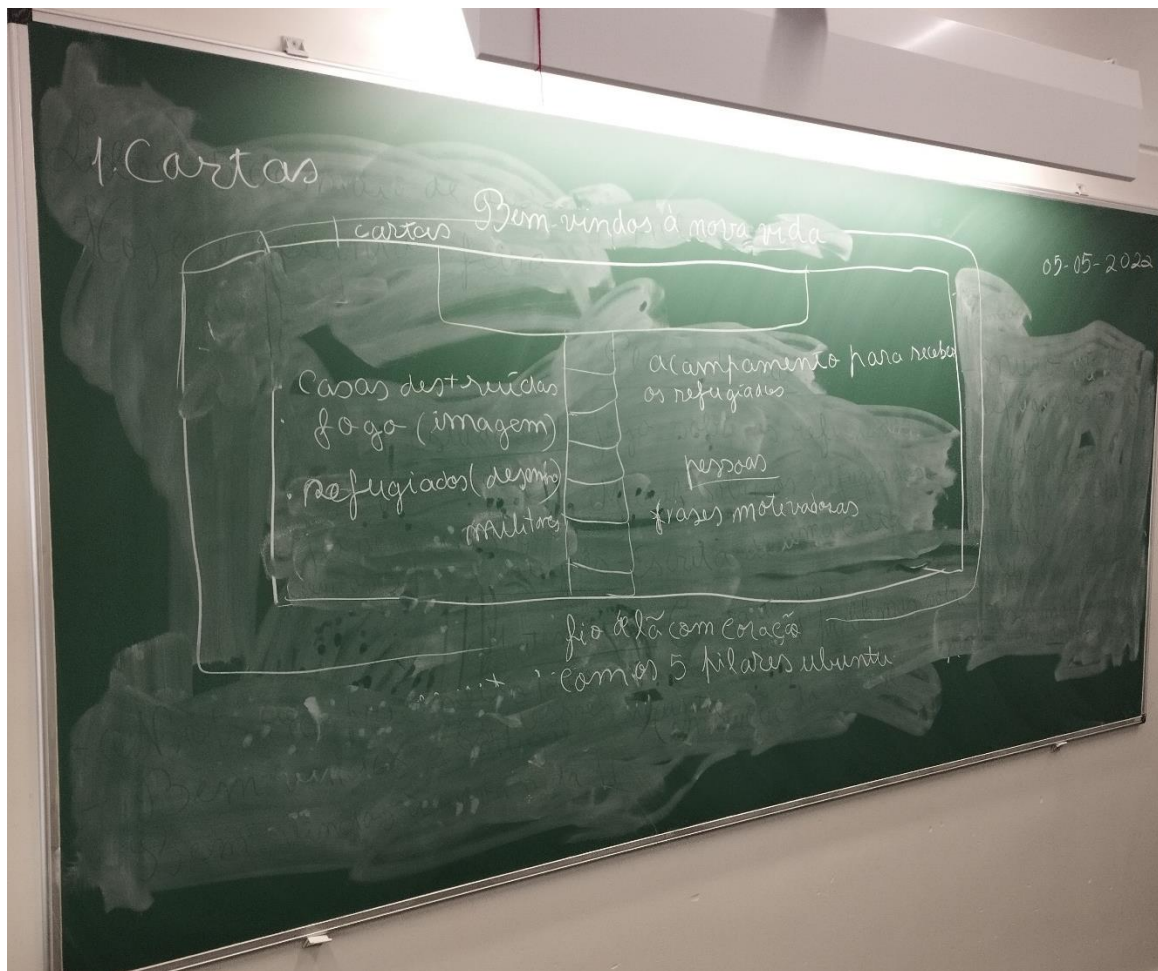 1. Cartas
Bem-vindos à nova vida
1 cartas
05-05-2022
. Casas destruídas
. fogo (imagem)
. refugiados (desenho)
militares
acampamento para receber
os refugiados
pessoas
frases motivadoras
fio de lã com coração
com os 5 pilares ubuntu